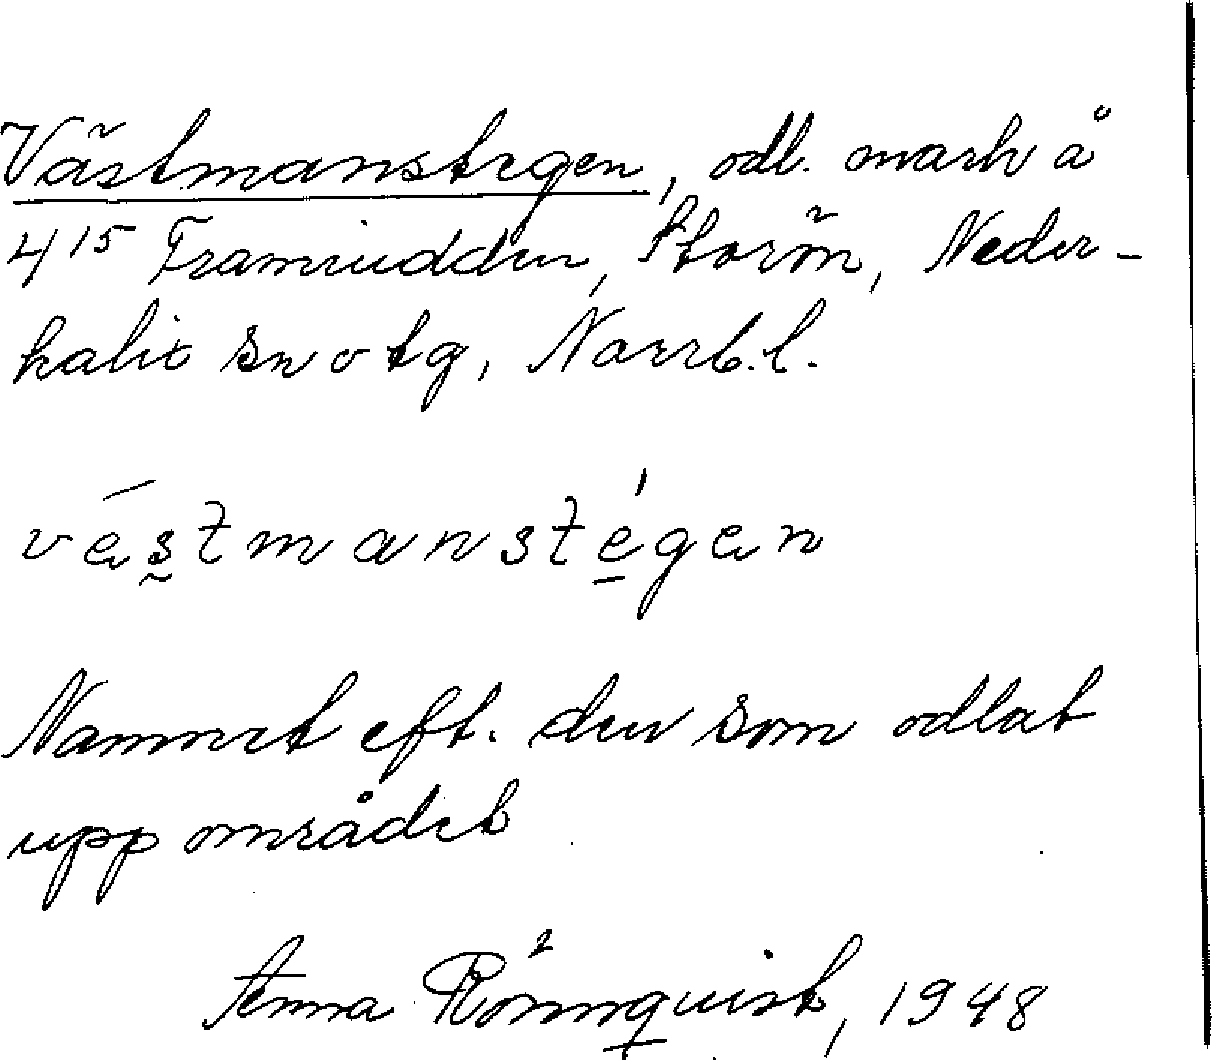 Västmanstegen, odl. mark å
4¹⁵ Framrudden, Storön, Neder-
kalix sn o tg, Norrb. l.
véstmanstégen
Namnet eft. den som odlat
upp området
Anna Rönnquist, 1948